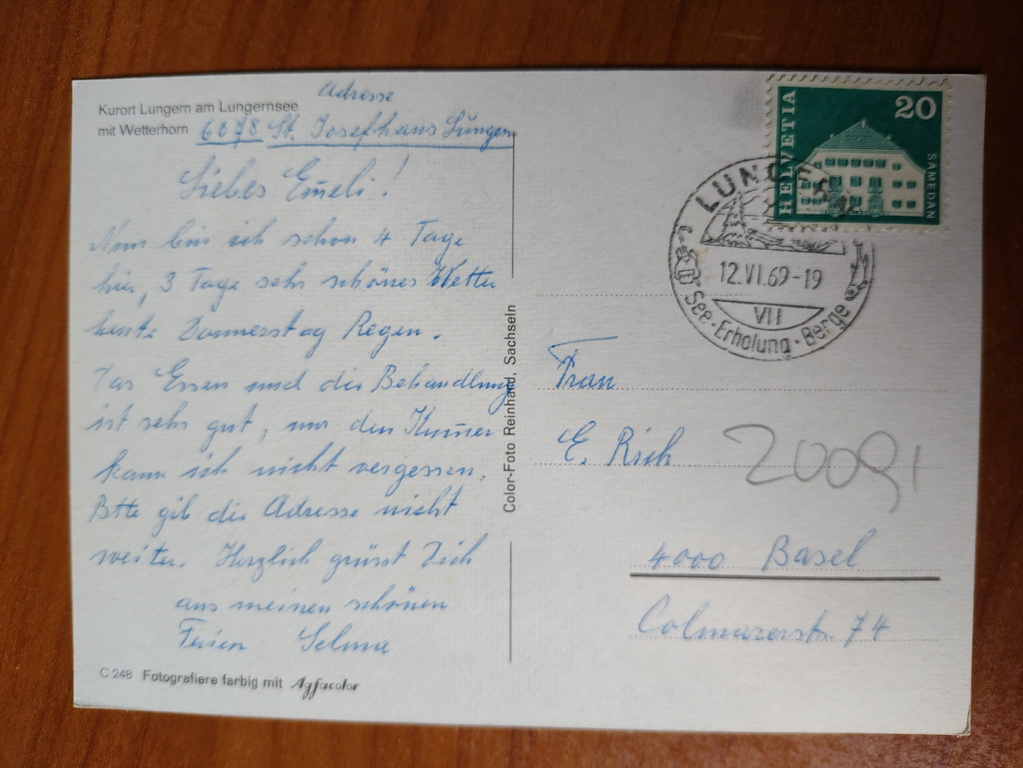 Kurort Lungern am Lungernsee
mit Wetterhorn
Adresse
6078 St. Josefhaus Lungern
Liebes Emeli!
Nun bin ich schon 4 Tage
hier, 3 Tage sehr schönes Wetter
heute Donnerstag Regen.
Das Essen und die Behandlung
ist sehr gut, nur den Kummer
kann ich nicht vergessen.
Btte gib die Adresse nicht
weiter. Herzlich grüsst Dich
aus meinen schönen
Ferien Selma
C 248 Fotografiere farbig mit Agfacolor
Color-Foto Reinhard, Sachseln
HELVETIA
20
SAMEDAN
LUNGERN
12.VI.69-19
VII
See·Erholung·Berge
Frau
E. Rich
20091
4000 Basel
Colmarerstr. 74